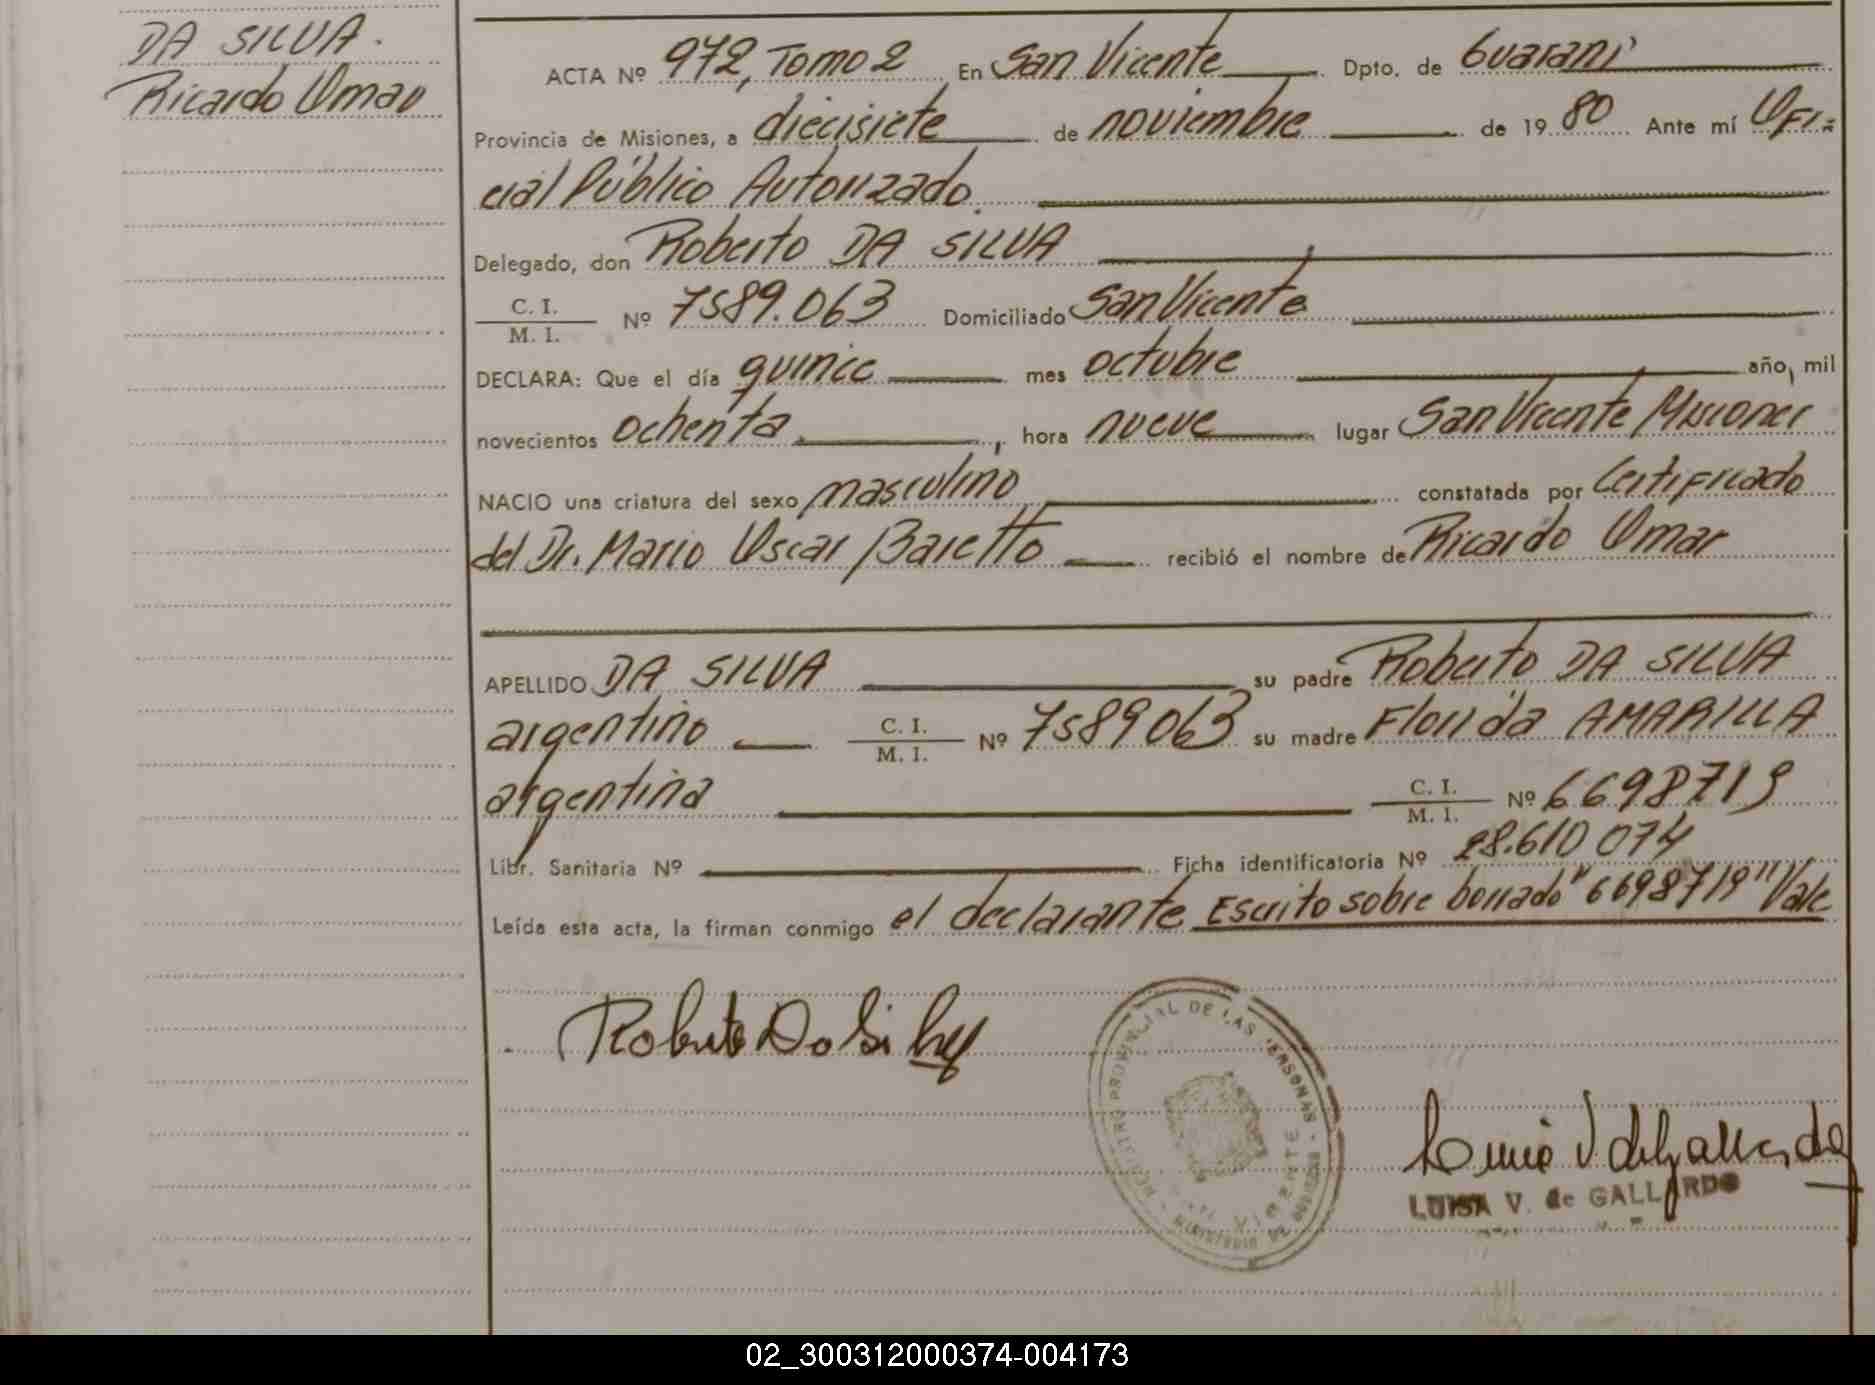 DA SILVA.
Ricardo Omar
ACTA Nº 972, Tomo 2 En San Vicente Dpto. de Guaraní
Provincia de Misiones, a diecisiete de noviembre de 1980 Ante mí Ofi-
cial Público Autorizado.
Delegado, don Roberto DA SILVA
C. I.
M. I. Nº 7589.063 Domiciliado San Vicente
DECLARA: Que el día quince mes octubre año, mil
novecientos ochenta, hora nueve lugar San Vicente Misiones
NACIO una criatura del sexo masculino constatada por Certificado
del Dr. Mario Oscar Baretto recibió el nombre de Ricardo Omar
APELLIDO DA SILVA su padre Roberto DA SILVA
argentino C. I.
M. I. Nº 7589063 su madre Florida AMARILLA
argentina C. I.
M. I. Nº 6698719
Libr. Sanitaria Nº Ficha identificatoria Nº 28.610 074
Leída esta acta, la firman conmigo el declarante Escrito sobre borrado "6698719" Vale
Roberto Da Silva
REGISTRO PROVINCIAL DE LAS PERSONAS
VICENTE
LUISA V. de GALLARDO
02_300312000374-004173